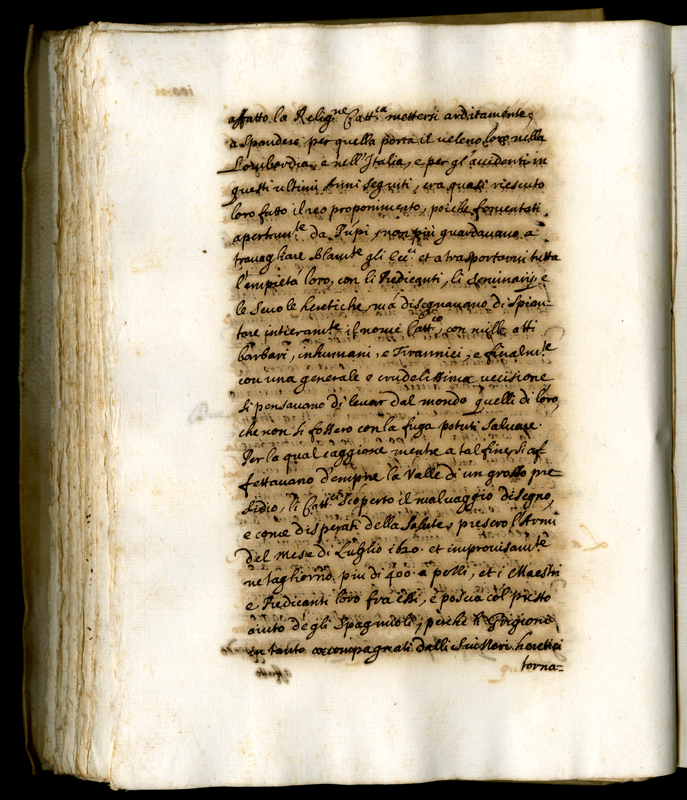 affatto la Relig.ne Catt.ca mettersi arditamente
a Spandere per quella porta il veleno loro nella
Lombardia, e nell'Italia, e per gl'accidenti in
questi ultimi Anni seguiti, era quasi riescuto
loro fatto il reo proponimento, poiche fomentati
apertam.te da Pupi, non più guardavano a
travagliare blam.te gli Ecc.ci et a trasportarvi tutta
l'empietà loro, con li Predicanti, li Seminarij, e
le Scuole heretiche, mà disegnavano di spian=
tare intieram.te il nome Catt.co, con mille atti
barbari, inhumani, e Tirannici, e finalm.te
con una generale e crudelissima uccisione
si pensavano di levar dal mondo quelli di loro,
che non si fossero con la fuga potuti salvare.
Per la qual caggione mentre a tal fine si af=
fettavano d'empire la Valle di un grosso pre=
sidio, li Catt.ci scoperto il malvaggio disegno,
e come disperati della salute, presero l'Armi
del Mese di Luglio 1620. et improvisam.te
ne tagliorno più di 400. a pezzi, et i Maestri
e Predicanti loro fra essi, e poscia col presto
aiuto degli Spagnuoli, perche li Grigioni
in tanto accompagnati dalli Suizzeri heretici
torna=